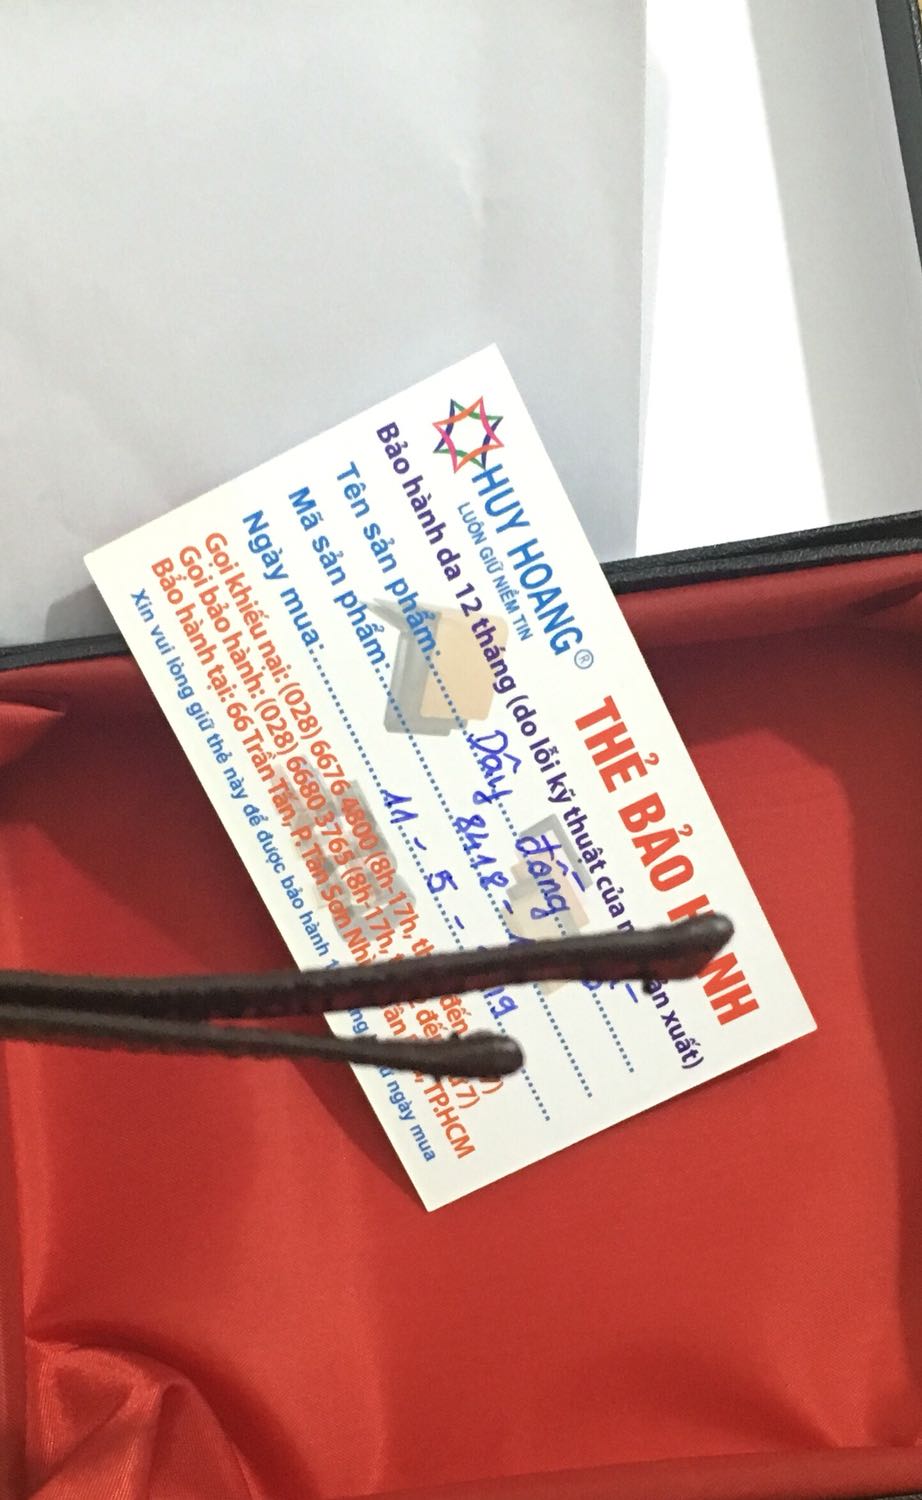 HUY HOANG®
LUÔN GIỮ NIỀM TIN
THẺ BẢO
Bảo hành da 12 tháng (do lỗi kỹ thuật của xuất)
Tên sản phẩm: Dây đồng
Mã sản phẩm: 8418 -
Ngày mua: 11 - 5 -
Gọi khiếu nại: (028) 6676 4800 (8h-17h, đến
Gọi bảo hành: (028) 6680 3765 (8h-17h, đến 7)
Bảo hành tại: 66 Trần Tấn, P. Tân Sơn TP.HCM
Xin vui lòng giữ thẻ này để được bảo hành ngày mua